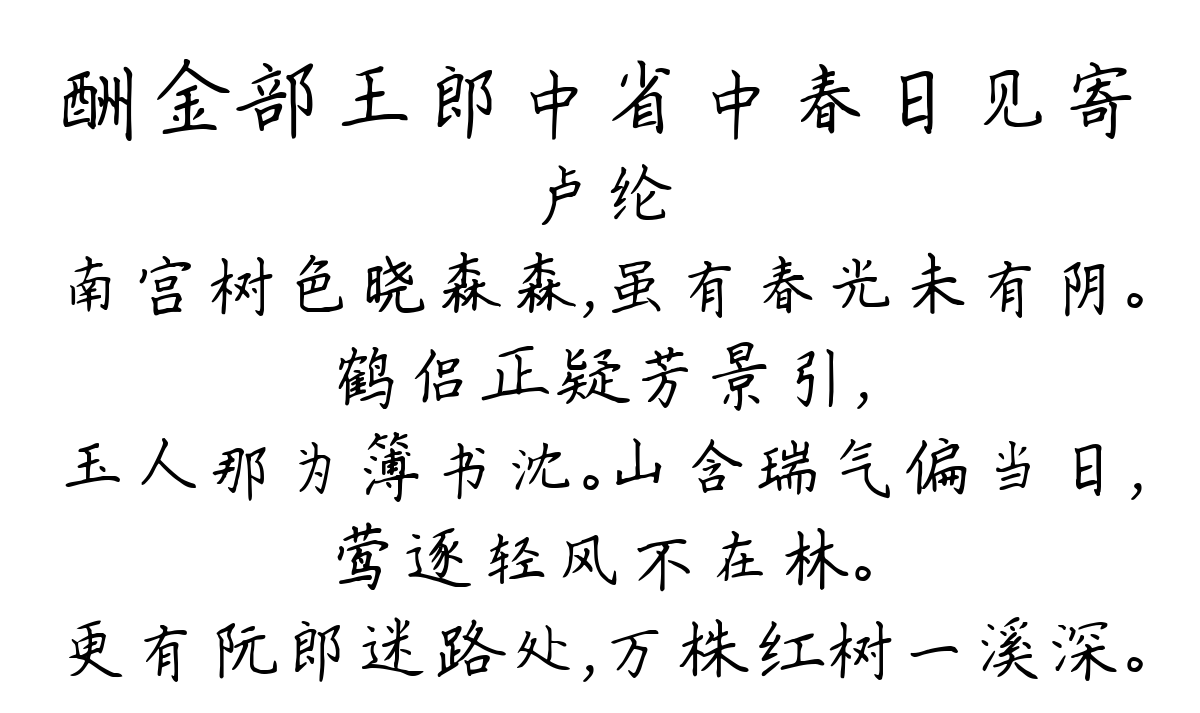 酬金部王郎中省中春日见寄
卢纶
南宫树色晓森森,虽有春光未有阴。
鹤侣正疑芳景引,
玉人那为簿书沈。山含瑞气偏当日,
莺逐轻风不在林。
更有阮郎迷路处,万株红树一溪深。